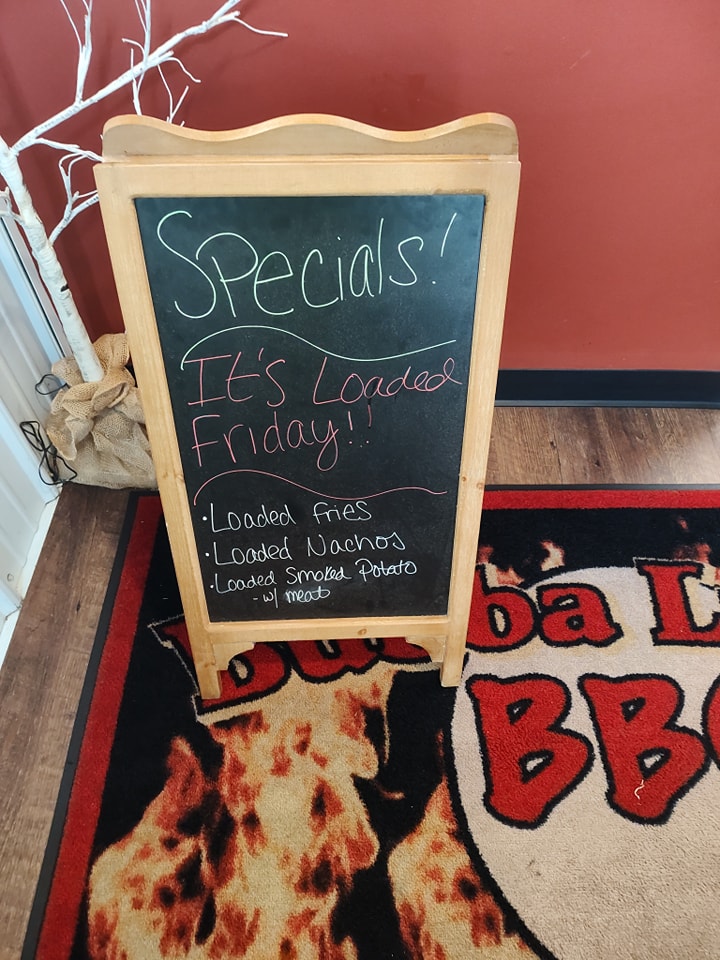 Specials!
It's Loaded
Friday!!
• Loaded fries
• Loaded Nachos
• Loaded Smoked Potato
- w/ meat
Bubba L
BB